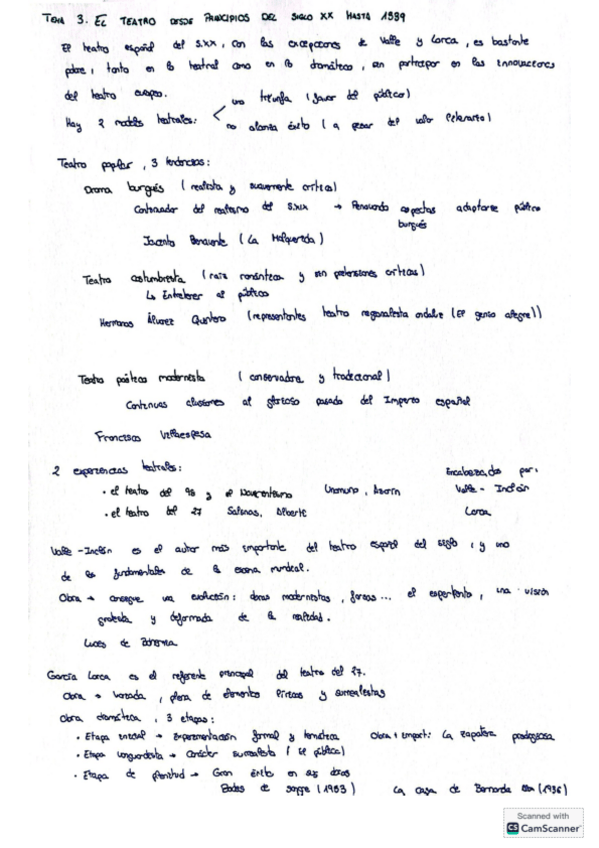 TEMA 3. EL TEATRO DESDE PRINCIPIOS DEL SIGLO XX HASTA 1939
El teatro español del S.XX, con las excepciones de Valle y Lorca, es bastante
pobre, tanto en lo teatral como en lo dramático, sin participar en las innovaciones
del teatro europeo.
uno triunfa (favor del público)
Hay 2 modelos teatrales:
no alcanza éxito (a pesar del valor literario)
Teatro popular, 3 tendencias:
Drama burgués (realista y suavemente crítica)
Continuador del realismo del S.XIX → Renovando aspectos adaptarse público
burgués
Jacinto Benavente (La Malquerida)
Teatro costumbrista (raíz romántica y sin pretensiones críticas)
↳ Entretener al público
Hermanos Álvarez Quintero (representantes teatro regionalista andaluz (El genio alegre))
Teatro poético modernista (conservadora y tradicional)
Continuas alusiones al glorioso pasado del Imperio español
Francisco Villaespesa
2 experiencias teatrales: Encabezados por:
• el teatro del 98 y el Novecentismo Unamuno, Azorín Valle-Inclán
• el teatro del 27 Salinas, Alberti Lorca
Valle-Inclán es el autor más importante del teatro español del siglo, y uno
de los fundamentales de la escena mundial.
Obra → consigue una evolución: obras modernistas, farsas... el esperpento, una visión
grotesca y deformada de la realidad.
Luces de Bohemia
García Lorca es el referente principal del teatro del 27.
Obra → variada, plena de elementos líricos y surrealistas
Obra dramática, 3 etapas:
• Etapa inicial → Experimentación formal y temática Obra + import: La zapatera prodigiosa
• Etapa vanguardista → Carácter surrealista (El público)
• Etapa de plenitud → Gran éxito en sus obras
Bodas de sangre (1933) La casa de Bernarda Alba (1936)
Scanned with
CS CamScanner